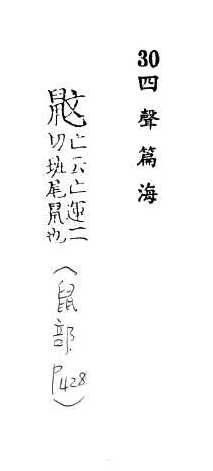 30四聲篇海
䶰亡云亡運二
切班尾鼠也
（鼠部
P428）